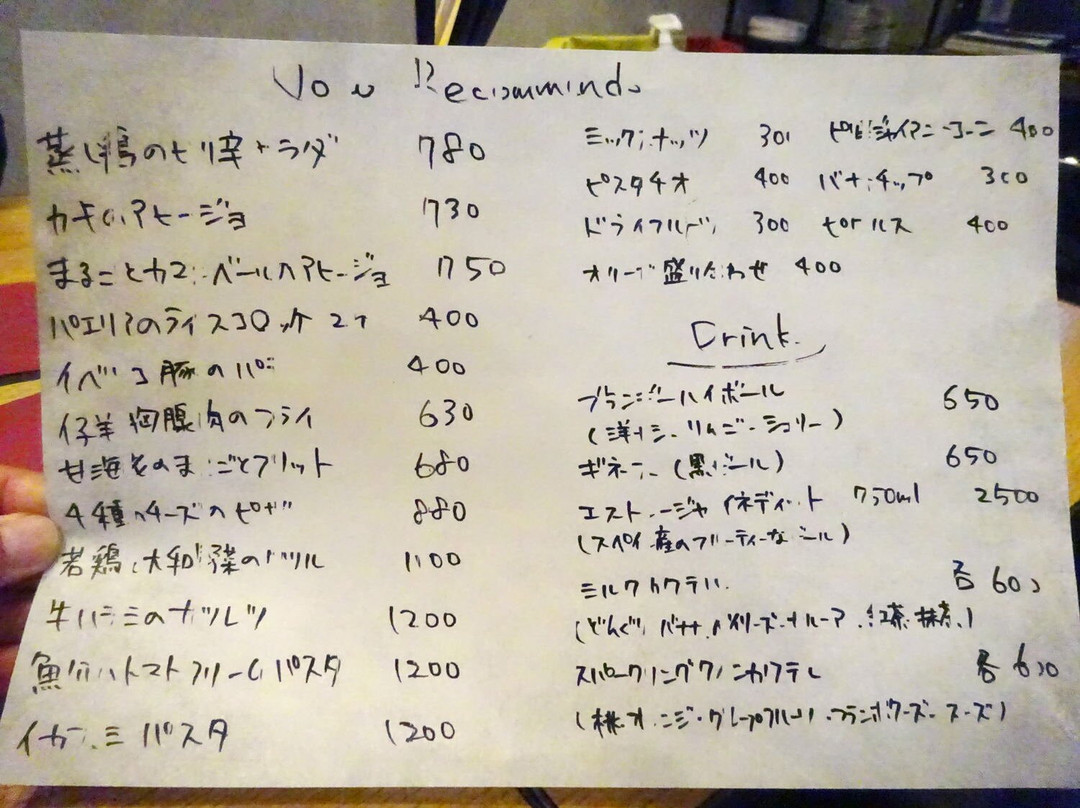 You Recommind.
蒸し鶏のピリ辛サラダ 780
カキのアヒージョ 730
まるごとカマンベールのアヒージョ 750
パエリアのライスコロッケ 2ケ 400
イベリコ豚のパテ 400
仔羊胸腺肉のフライ 630
甘海老のまるごとフリット 680
4種のチーズのピザ 880
若鶏と大和野菜の 1100
牛ハラミのカツレツ 1200
魚介のトマトクリームパスタ 1200
イカスミパスタ 1200
ミックスナッツ 300
ジャイアントコーン 400
ピスタチオ 400
バナナチップ 300
ドライフルーツ 300
400
オリーブ盛り合わせ 400
Drink.
ブランジーハイボール 650
(洋ナシ・リンゴ・シェリー)
ギネス (黒ビール) 650
エストレージャ イネディット 750ml 2500
(スペイン産のフルーティーなビール)
ミルクカクテル 各 600
(どんぐり バナナ ベイリーズ カルーア 紅茶 抹茶)
スパークリングワインカクテル 各 600
(桃・オレンジ・グレープフルーツ・フランボワーズ・スーズ)